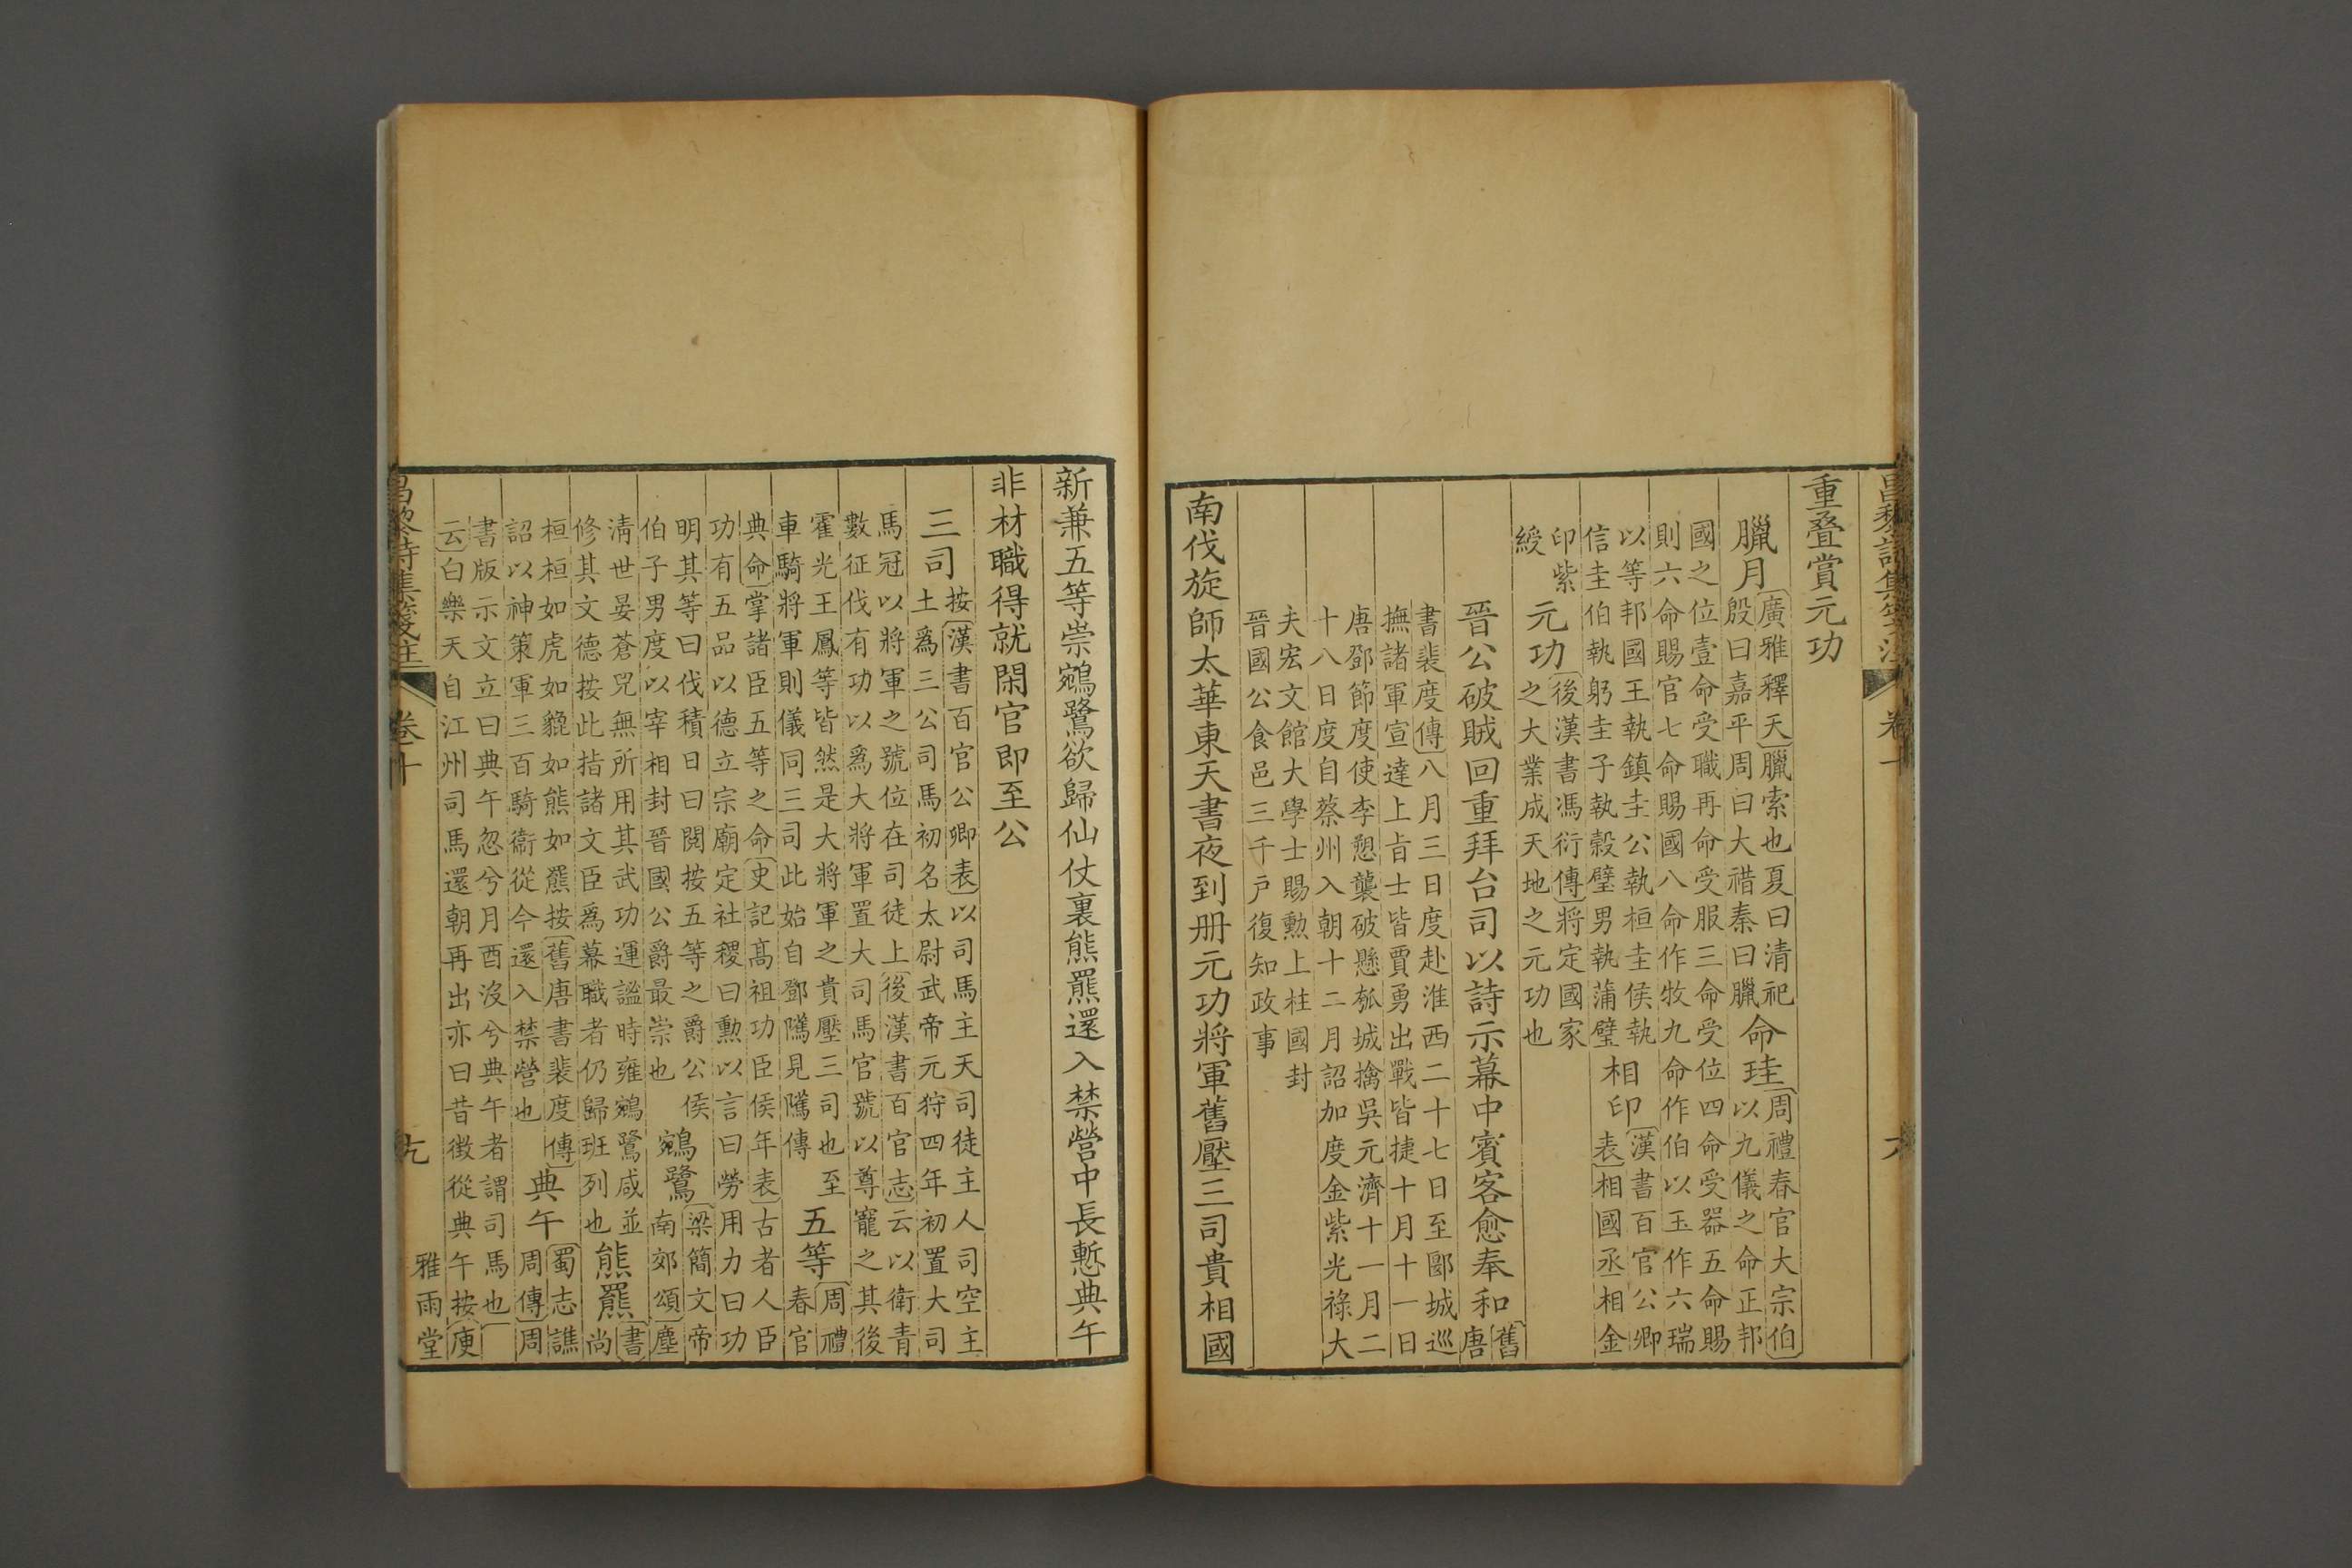 昌黎詩集箋注
卷十
重疊賞元功
臘月
廣雅釋天臘索也夏曰清祀
殷曰嘉平周曰大䄍秦曰臘
命珪
周禮春官大宗伯
以九儀之命正邦
國之位壹命受職再命受服三命受位四命受器五命賜
則六命賜官七命賜國八命作牧九命作伯以玉作六瑞
以等邦國王執鎮圭公執桓圭侯執
信圭伯執躬圭子執穀璧男執蒲璧
相印
漢書百官公卿
表相國丞相金
印紫
綬
元功
後漢書馮衍傳將定國家
之大業成天地之元功也
晉公破賊回重拜台司以詩示幕中賓客愈奉和
舊
唐
書裴度傳八月三日度赴淮西二十七日至郾城巡
撫諸軍宣達上旨士皆賈勇出戰皆捷十月十一日
唐鄧節度使李愬襲破懸瓠城擒吳元濟十一月二
十八日度自蔡州入朝十二月詔加度金紫光祿大
夫宏文館大學士賜勳上柱國封
晉國公食邑三千戶復知政事
南伐旋師太華東天書夜到册元功將軍舊壓三司貴相國
新兼五等崇鵷鷺欲歸仙仗裏熊羆還入禁營中長慙典午
非材職得就閑官即至公
三司
按漢書百官公卿表以司馬主天司徒主人司空主
土爲三公司馬初名太尉武帝元狩四年初置大司
馬冠以將軍之號位在司徒上後漢書百官志云以衛青
數征伐有功以爲大將軍置大司馬官號以尊寵之其後
霍光王鳳等皆然是大將軍之貴壓三司也至
車騎將軍則儀同三司此始自鄧隲見隲傳
五等
周禮
春官
典命掌諸臣五等之命史記高祖功臣侯年表古者人臣
功有五品以德立宗廟定社稷曰勳以言曰勞用力曰功
明其等曰伐積日曰閱按五等之爵公侯
伯子男度以宰相封晉國公爵最崇也
鵷鷺
梁簡文帝
南郊頌塵
清世晏蒼兕無所用其武功運謐時雍鵷鷺咸並
修其文德按此指諸文臣爲幕職者仍歸班列也
熊羆
書
尚
桓桓如虎如貔如熊如羆按舊唐書裴度傳
詔以神策軍三百騎衛從今還入禁營也
典午
蜀志譙
周傳周
書版示文立曰典午忽兮月酉沒兮典午者謂司馬也
云白樂天自江州司馬還朝再出亦曰昔徵從典午按庾
昌黎詩集箋注
卷十
九
雅雨堂